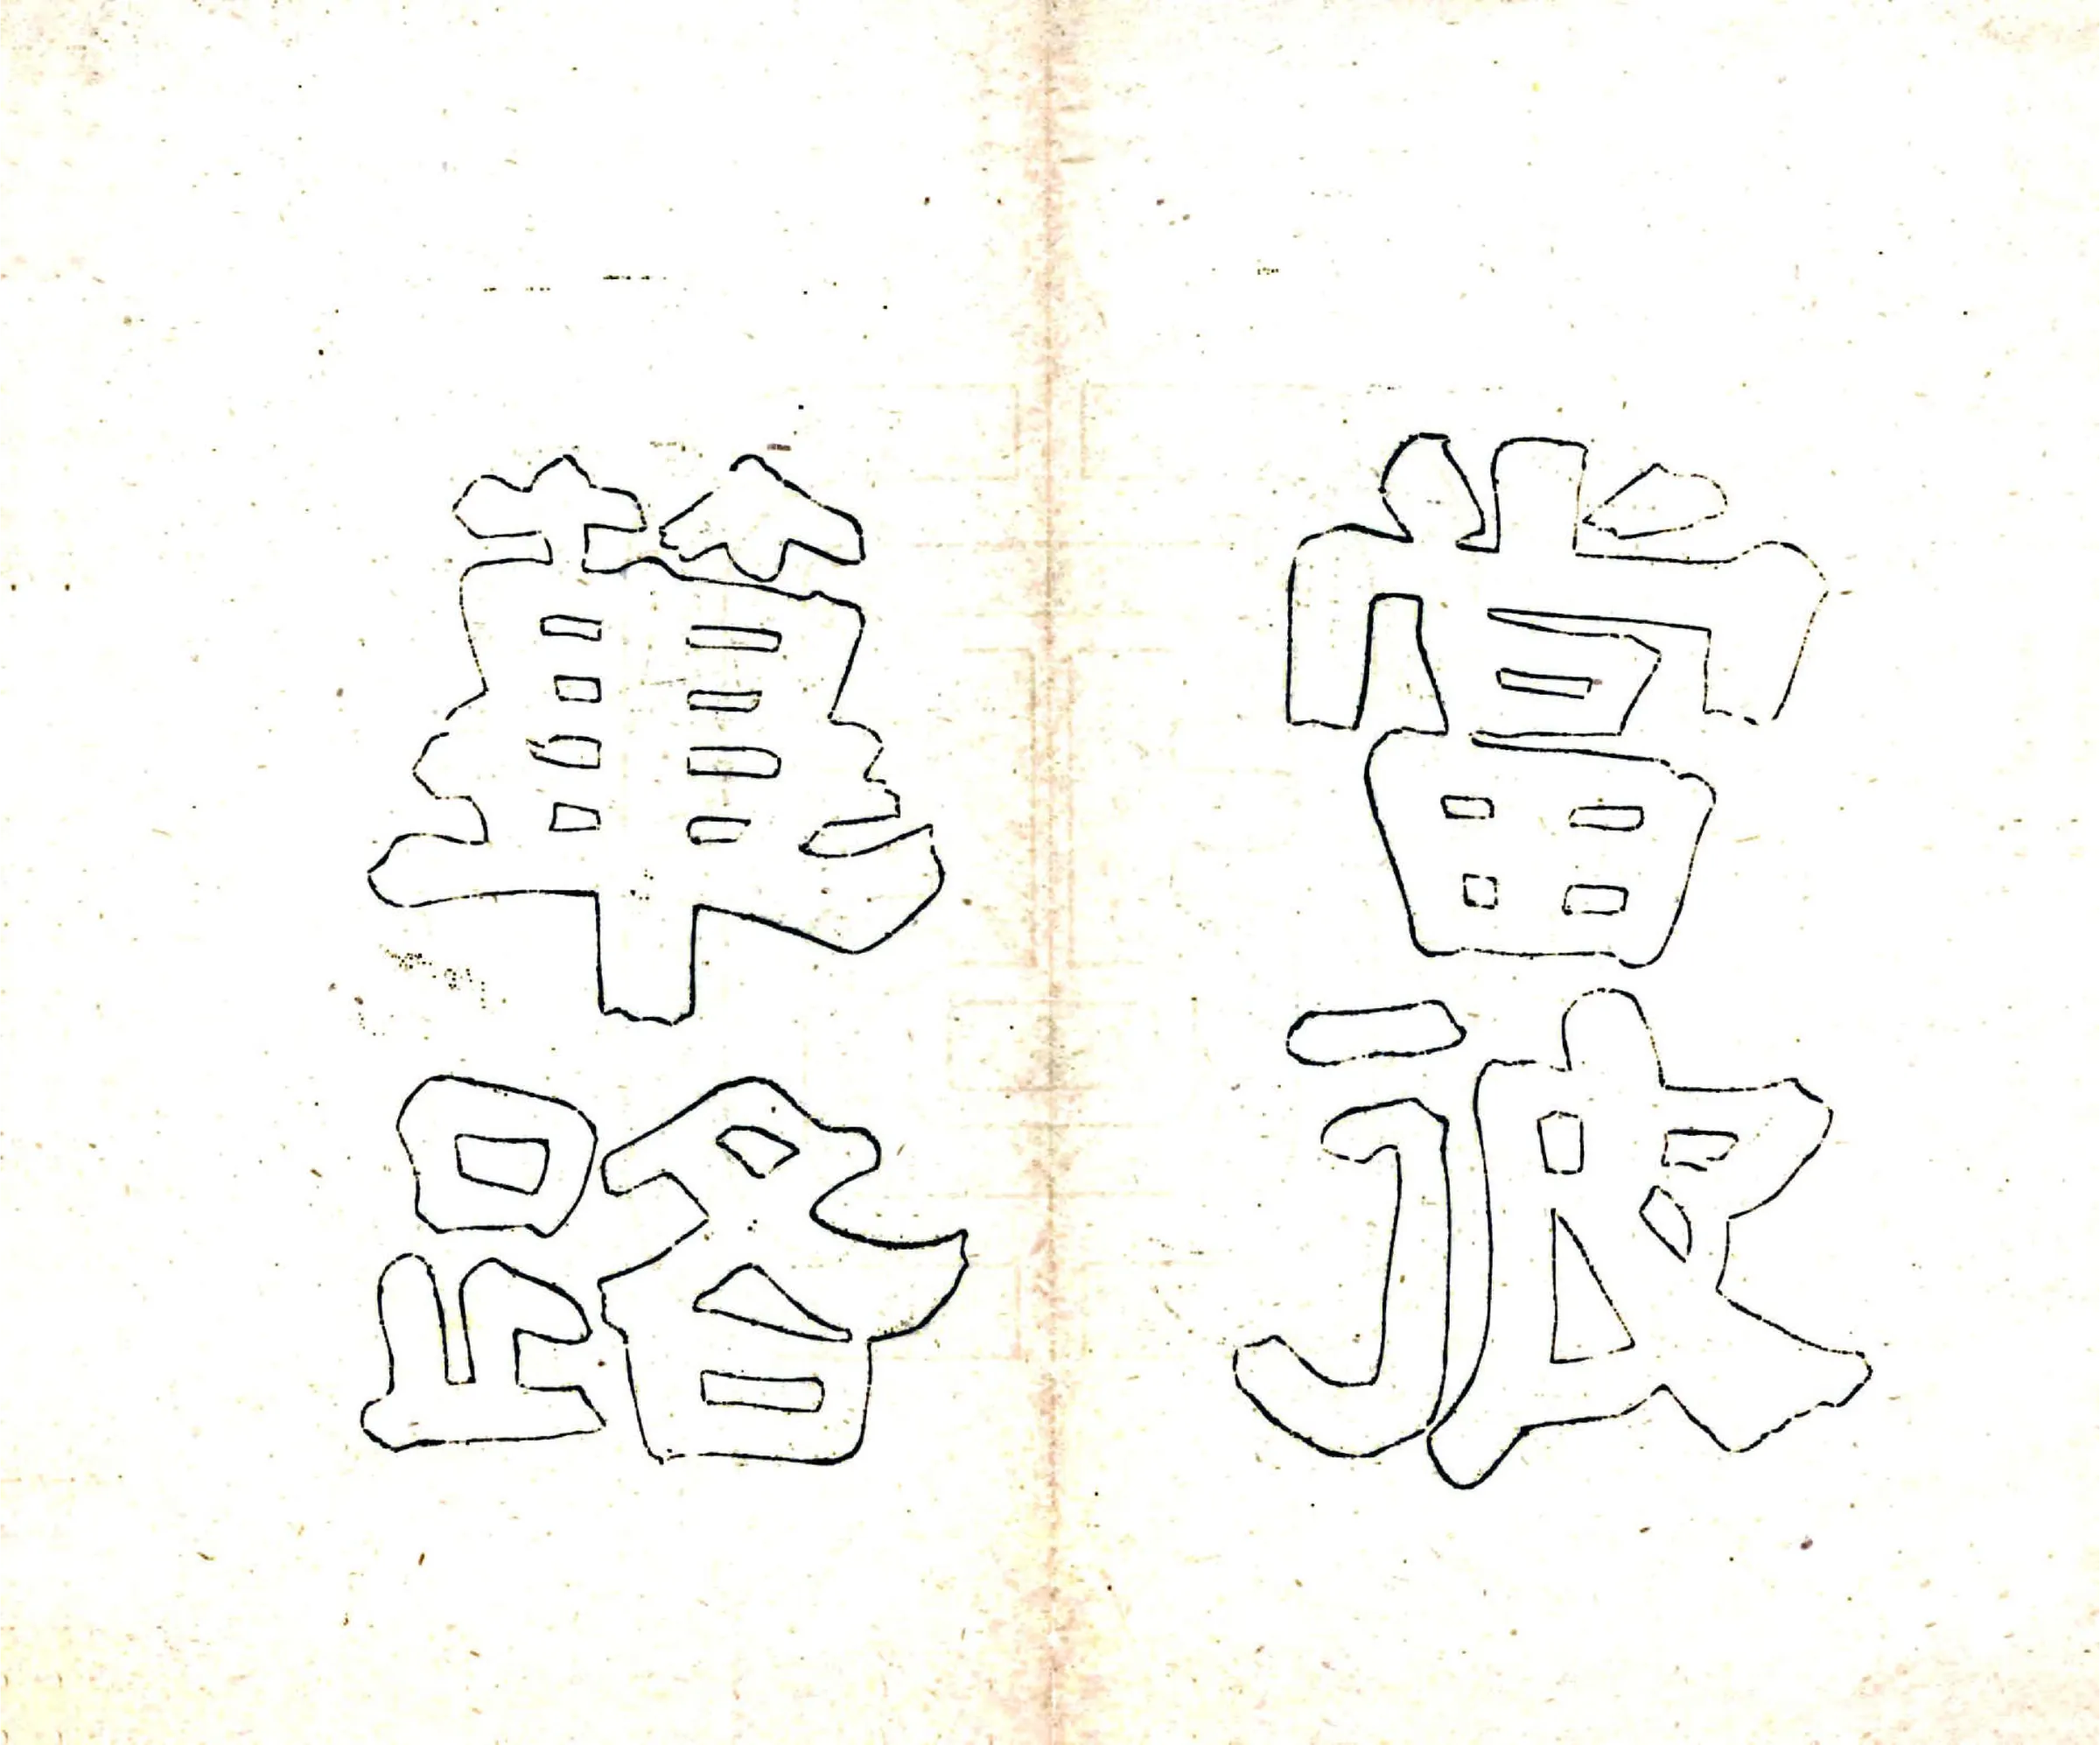 當波
華路